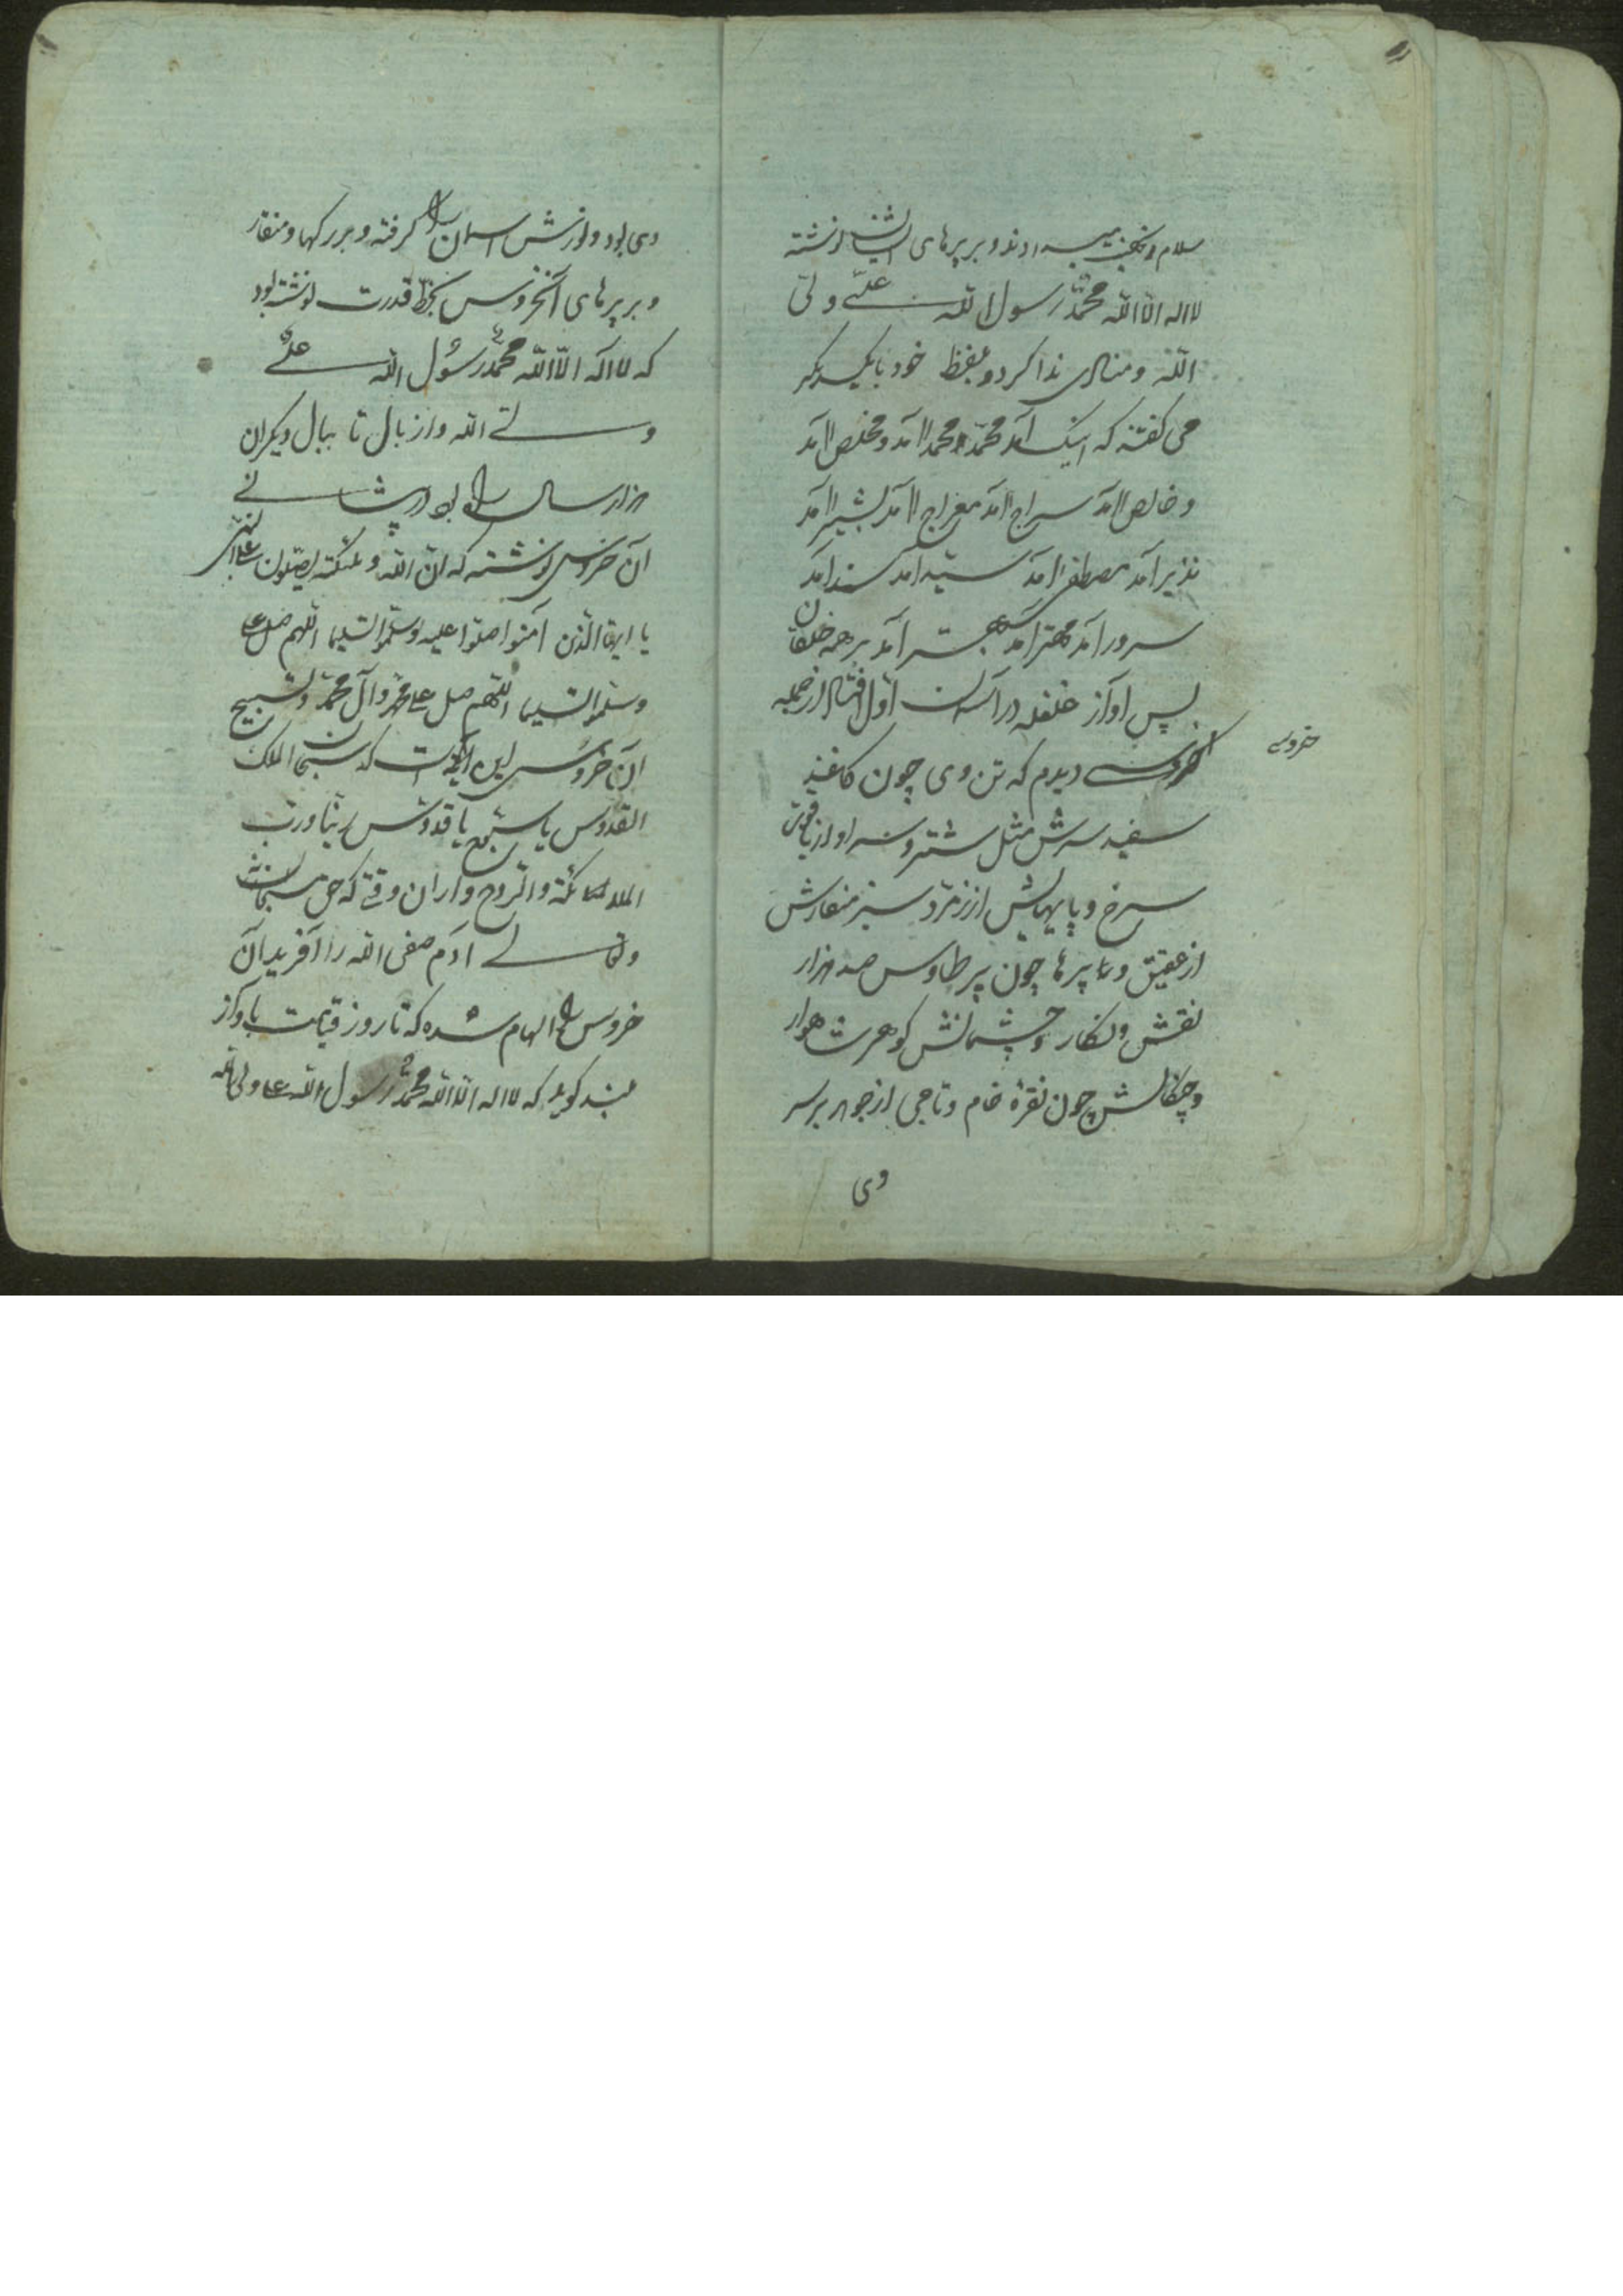 سلام و تحیت میدادند و بر پرهای ایشان نوشته
لا اله الا الله محمد رسول الله علی ولی
الله و منادی ندا کرد و بلفظ خود با یکدیگر
می گفتند که اینک آمد محمد آمد و مخلص آمد
و خالص آمد سراج آمد معراج آمد بشیر آمد
نذیر آمد مصطفی آمد سید آمد سند آمد
سرور آمد مهتر آمد بهتر آمد بر همه خلقان
پس آواز غلغله در آسمان اول افتاد از جمله
خروسی
خروسی دیدم که تن وی چون کاغذ
سفید سرش مثل شتر و سر او از یاقوت
سرخ و پایهایش از زمرد سبز منقارش
از عقیق و پرها چون پر طاوس صد هزار
نقش و نگار و چشمانش گوهر شاهوار
و چنگالش چون نقره خام و تاجی از جوهر بر سر
وی
وی بود و نورش آسمان را گرفته و بر رکها و منقار
و بر پرهای آنخروس بخط قدرت نوشته بود
که لا اله الا الله محمد رسول الله علی
ولی الله و از بال تا ببال دیگران
هزار ساله راه بود در پیشانی
آن خروس نوشته که ان الله و ملئکته یصلون علی النبی
یا ایها الذین آمنوا صلوا علیه و سلموا تسلیما اللهم صل علی
و سلموا تسلیما اللهم صل علی محمد و آل محمد و تسبیح
آن خروس این است که سبحان الملک
القدوس یا سبوح یا قدوس ربنا و رب
الملائکة و الروح و از آن وقتی که حق سبحانه
و تعالی آدم صفی الله را آفرید آن
خروس را الهام شده که تا روز قیامت باواز
بلند گوید که لا اله الا الله محمد رسول الله علی ولی الله